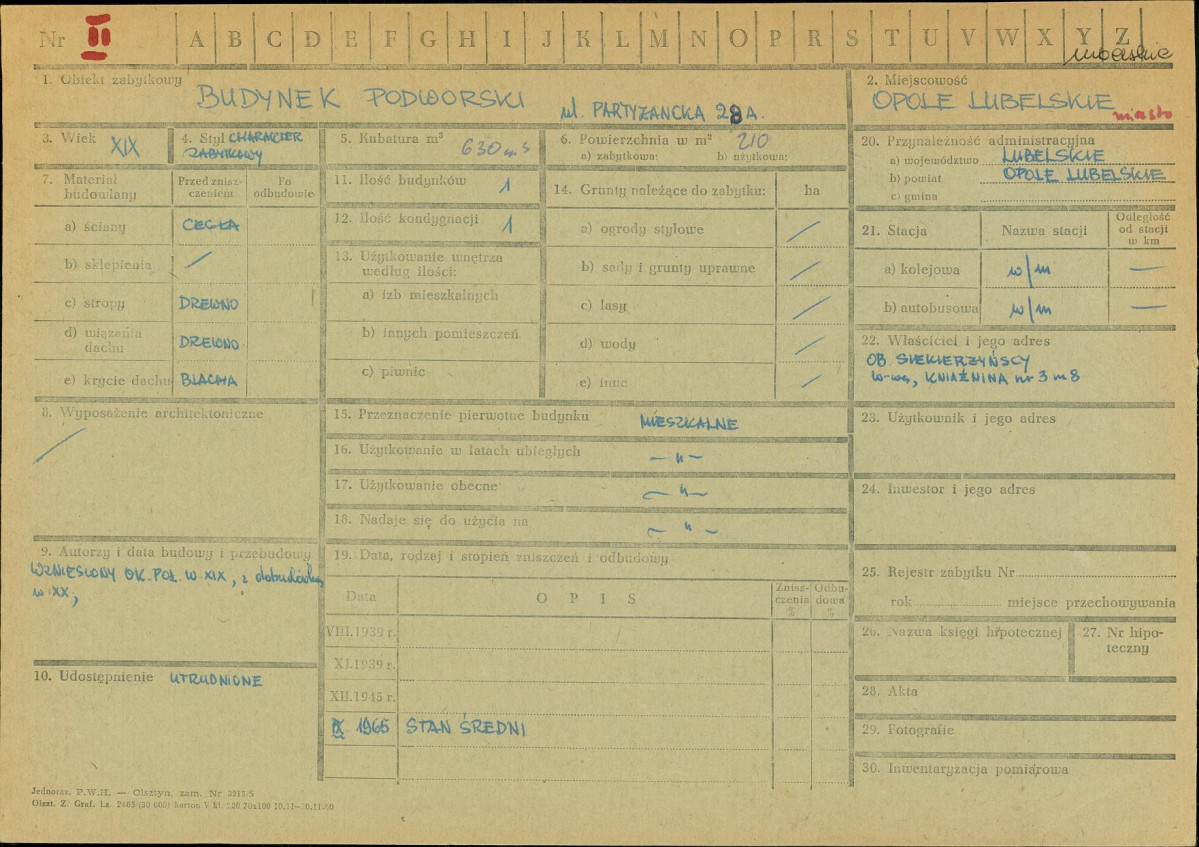 Nr II A B C D E F G H I J K L M N O P R S T U V W X Y Z
lubelskie
1. Obiekt zabytkowy
BUDYNEK PODWORSKI ul. PARTYZANCKA 28A.
2. Miejscowość
OPOLE LUBELSKIE miasto
3. Wiek XIX
4. Styl CHARACTER
ZABYTKOWY
5. Kubatura m³ 630 m³
6. Powierzchnia w m² 210
a) zabytkowa: b) użytkowa:
7. Materiał
budowlany
Przed znisz-
czeniem
Po
odbudowie
a) ściany CEGŁA
b) sklepienia /
c) stropy DREWNO
d) wiązania
dachu DREWNO
e) krycie dachu BLACHA
8. Wyposażenie architektoniczne
/
9. Autorzy i data budowy i przebudowy
WZNIESIONY OK. POŁ. W XIX, z dobudówką
w XX;
10. Udostępnienie UTRUDNIONE
11. Ilość budynków 1
12. Ilość kondygnacji 1
13. Użytkowanie wnętrza
według ilości:
a) izb mieszkalnych
b) innych pomieszczeń
c) piwnic
14. Grunty należące do zabytku: ha
a) ogrody stylowe /
b) sady i grunty uprawne /
c) lasy /
d) wody /
e) inne /
15. Przeznaczenie pierwotne budynku MIESZKALNE
16. Użytkowanie w latach ubiegłych — " —
17. Użytkowanie obecne — " —
18. Nadaje się do użycia na — " —
19. Data, rodzaj i stopień zniszczeń i odbudowy
Data OPIS
Znisz-
czenia
%
Odbu-
dowa
%
VIII.1939 r.
XI.1939 r.
XII.1945 r.
IX 1965 STAN ŚREDNI
20. Przynależność administracyjna
a) województwo LUBELSKIE
b) powiat OPOLE LUBELSKIE
c) gmina
21. Stacja Nazwa stacji
Odległość
od stacji
w km
a) kolejowa w/m —
b) autobusowa w/m —
22. Właściciel i jego adres
OB. SIEKIERZYŃSCY
W-wa, KNIAŹNINA nr 3 m 8
23. Użytkownik i jego adres
24. Inwestor i jego adres
25. Rejestr zabytku Nr
rok miejsce przechowywania
26. Nazwa księgi hipotecznej
27. Nr hipo-
teczny
28. Akta
29. Fotografie
30. Inwentaryzacja pomiarowa
Jednoraz. P.W.H. — Olsztyn, zam. Nr 3215/S
Olszt. Z. Graf.